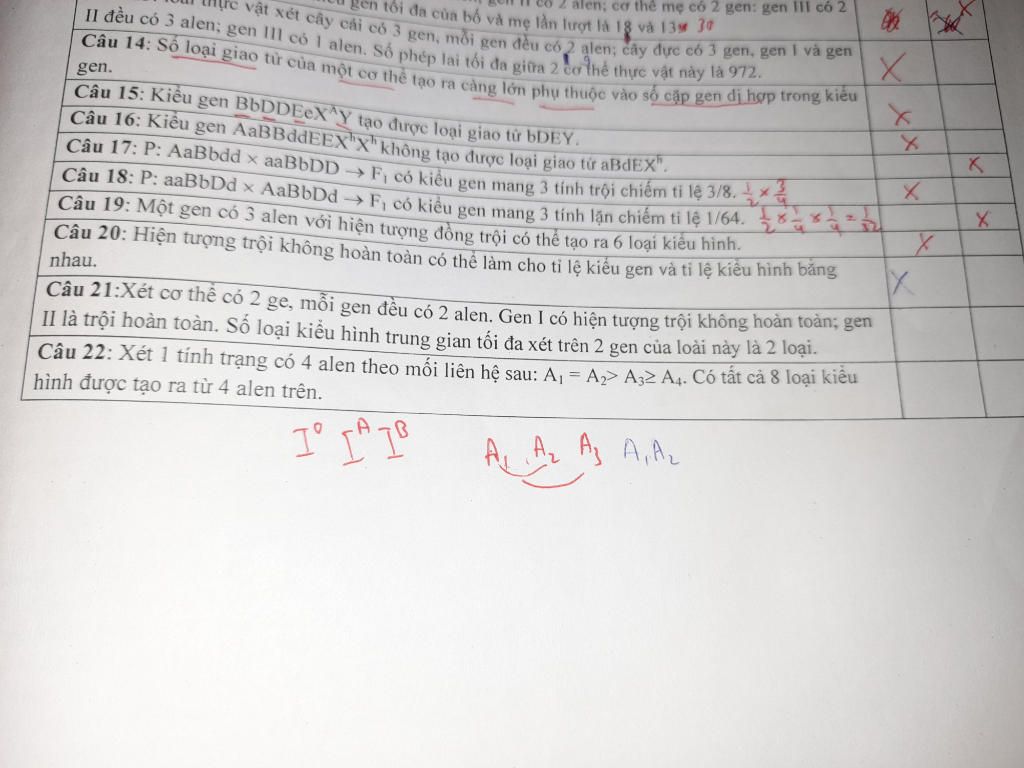 gen tối đa của bố và mẹ lần lượt là 18 và 13 30
gen II có 2 alen; cơ thể mẹ có 2 gen: gen III có 2
thực vật xét cây cái có 3 gen, mỗi gen đều có 2 alen; cây đực có 3 gen, gen I và gen
II đều có 3 alen; gen III có 1 alen. Số phép lai tối đa giữa 2 cơ thể thực vật này là 972.
Câu 14: Số loại giao tử của một cơ thể tạo ra càng lớn phụ thuộc vào số cặp gen dị hợp trong kiểu
gen.
Câu 15: Kiểu gen BbDDEeXᴬY tạo được loại giao tử bDEY.
Câu 16: Kiểu gen AaBBddEEXʰXʰ không tạo được loại giao tử aBdEXʰ.
Câu 17: P: AaBbdd × aaBbDD → F₁ có kiểu gen mang 3 tính trội chiếm tỉ lệ 3/8. 1/2 × 3/4
Câu 18: P: aaBbDd × AaBbDd → F₁ có kiểu gen mang 3 tính lặn chiếm tỉ lệ 1/64. 1/2 × 1/4 × 1/4 = 1/32
Câu 19: Một gen có 3 alen với hiện tượng đồng trội có thể tạo ra 6 loại kiểu hình.
Câu 20: Hiện tượng trội không hoàn toàn có thể làm cho tỉ lệ kiểu gen và tỉ lệ kiểu hình bằng
nhau.
Câu 21:Xét cơ thể có 2 ge, mỗi gen đều có 2 alen. Gen I có hiện tượng trội không hoàn toàn; gen
II là trội hoàn toàn. Số loại kiểu hình trung gian tối đa xét trên 2 gen của loài này là 2 loại.
Câu 22: Xét 1 tính trạng có 4 alen theo mối liên hệ sau: A₁ = A₂> A₃≥ A₄. Có tất cả 8 loại kiểu
hình được tạo ra từ 4 alen trên.
I⁰ Iᴬ Iᴮ A₁ A₂ A₃ A₁A₂